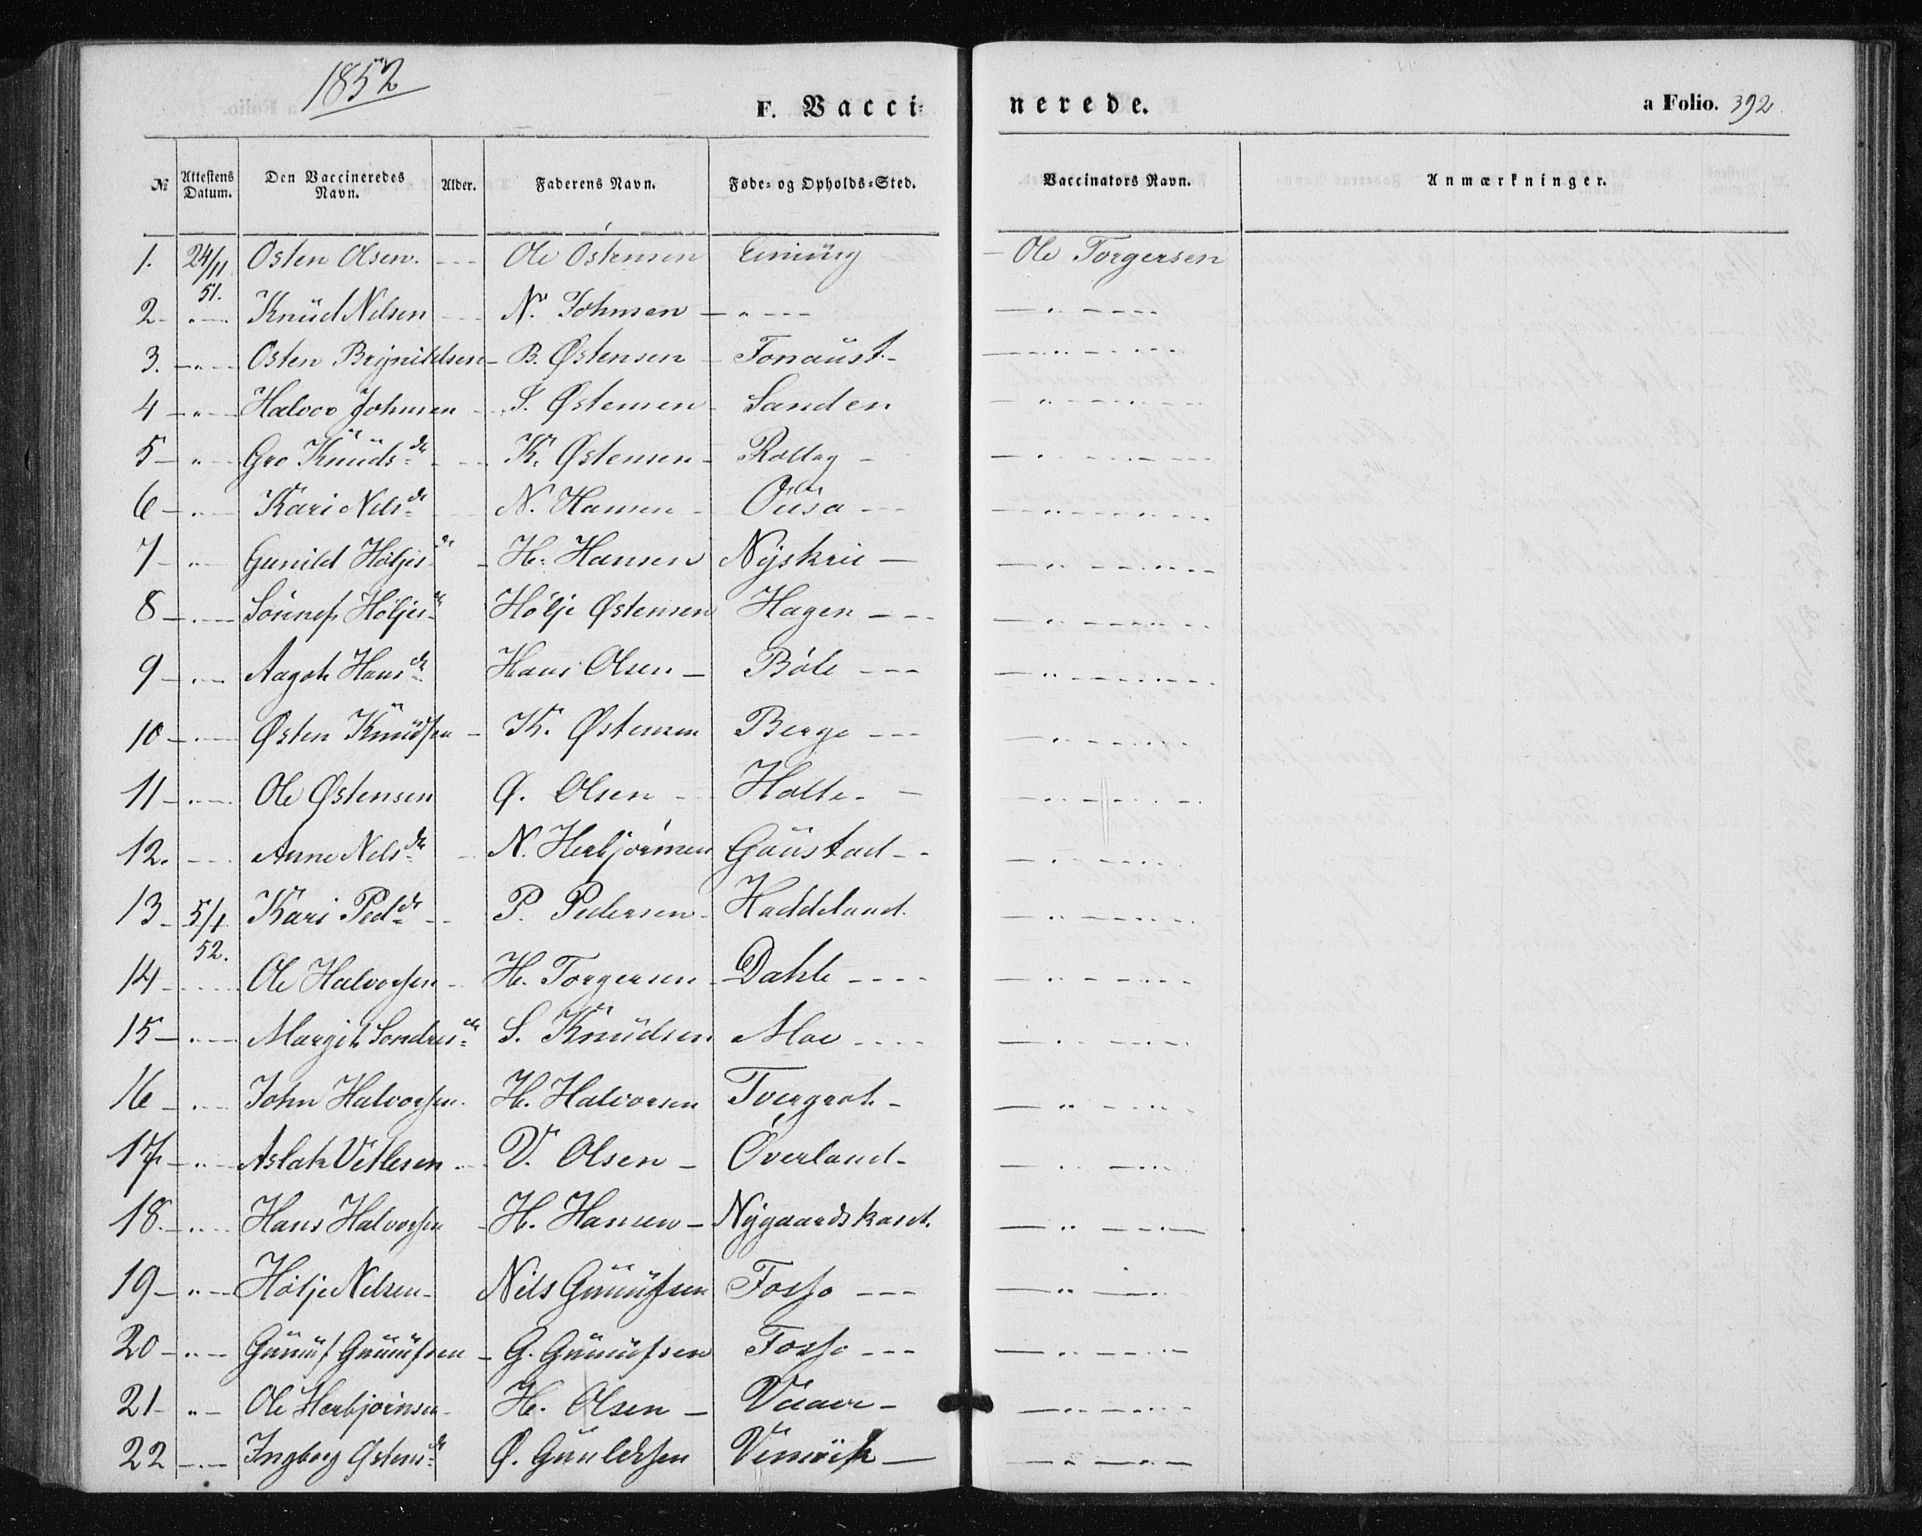 1852
F. Vaccinerede. a Folio. 392.
№ Attestens Datum. Den Vaccineredes Navn. Alder. Faderens Navn. Føde- og Opholds-Sted. Vaccinators Navn. Anmærkninger.
1. 24/11 51. Osten Olsen. - - - Ole Østensen - Ole Torgersen
2 - " - Knüd Nelsen - - N. Johnsen - " - - -
3. - " - Osten Brynildsen - B. Østensen - Fonaust -
4 - " - Halvor Johnsen - S. Østensen - Sanden
5 - " - Gro Knüdsdr - - K. Østensen - Rollag -
6 - " - Kari Nelsdr N. Hansen -
7 - " - Gunild Høljesdr - H. Hansen Nyskrie -
8 - " - Høljesdr Hølje Østensen Hagen - - -
9 - " - Aagot Hansdr Hans Olsen - Bøle - - -
10 - " - Østen Knüdsen - K. Østensen Berge - - -
11 - " - Ole Østensen Ø. Olsen - - Holte - -
12. - - - Anne Nelsdr - N. Herbjørnsen Gaustad - -
13 - 5/1 52. Kari Peddr - - P. Pedersen - Haddeland.
14 - - - Ole Halvorsen - H. Torgersen - Dahle - - - -
15 - " - Margit Sondresdr S. Knüdsen Moe - - - -
16 - " - John Halvorsen - H. Halvorsen Tvergrot. -
17 - " - Aslak Vetlesen - - V. Olsen - Överland -
18. - " - Hans Halvorsen - H. Hansen - Nygaardskaset.
19 - " - Hølje Nelsen - Nels Gunnüfsen Fosso - - -
20 - " - Gunnüf Gunnüfsen - G. Gunnüfsen Fosso - - -
21 - " - Ole Herbjörnsen - H. Olsen - -
22 - " - Ingborg Østensdr Ø. Gunleksen Vemörk -